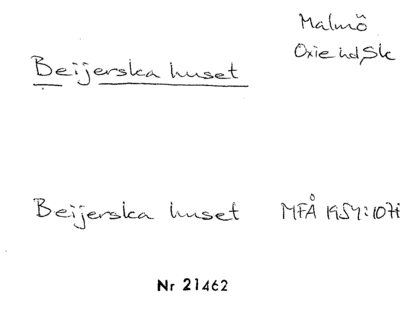 Malmö
Oxie hd, Sk
Beijerska huset
Beijerska huset MFÅ 1954:107i
Nr 21462